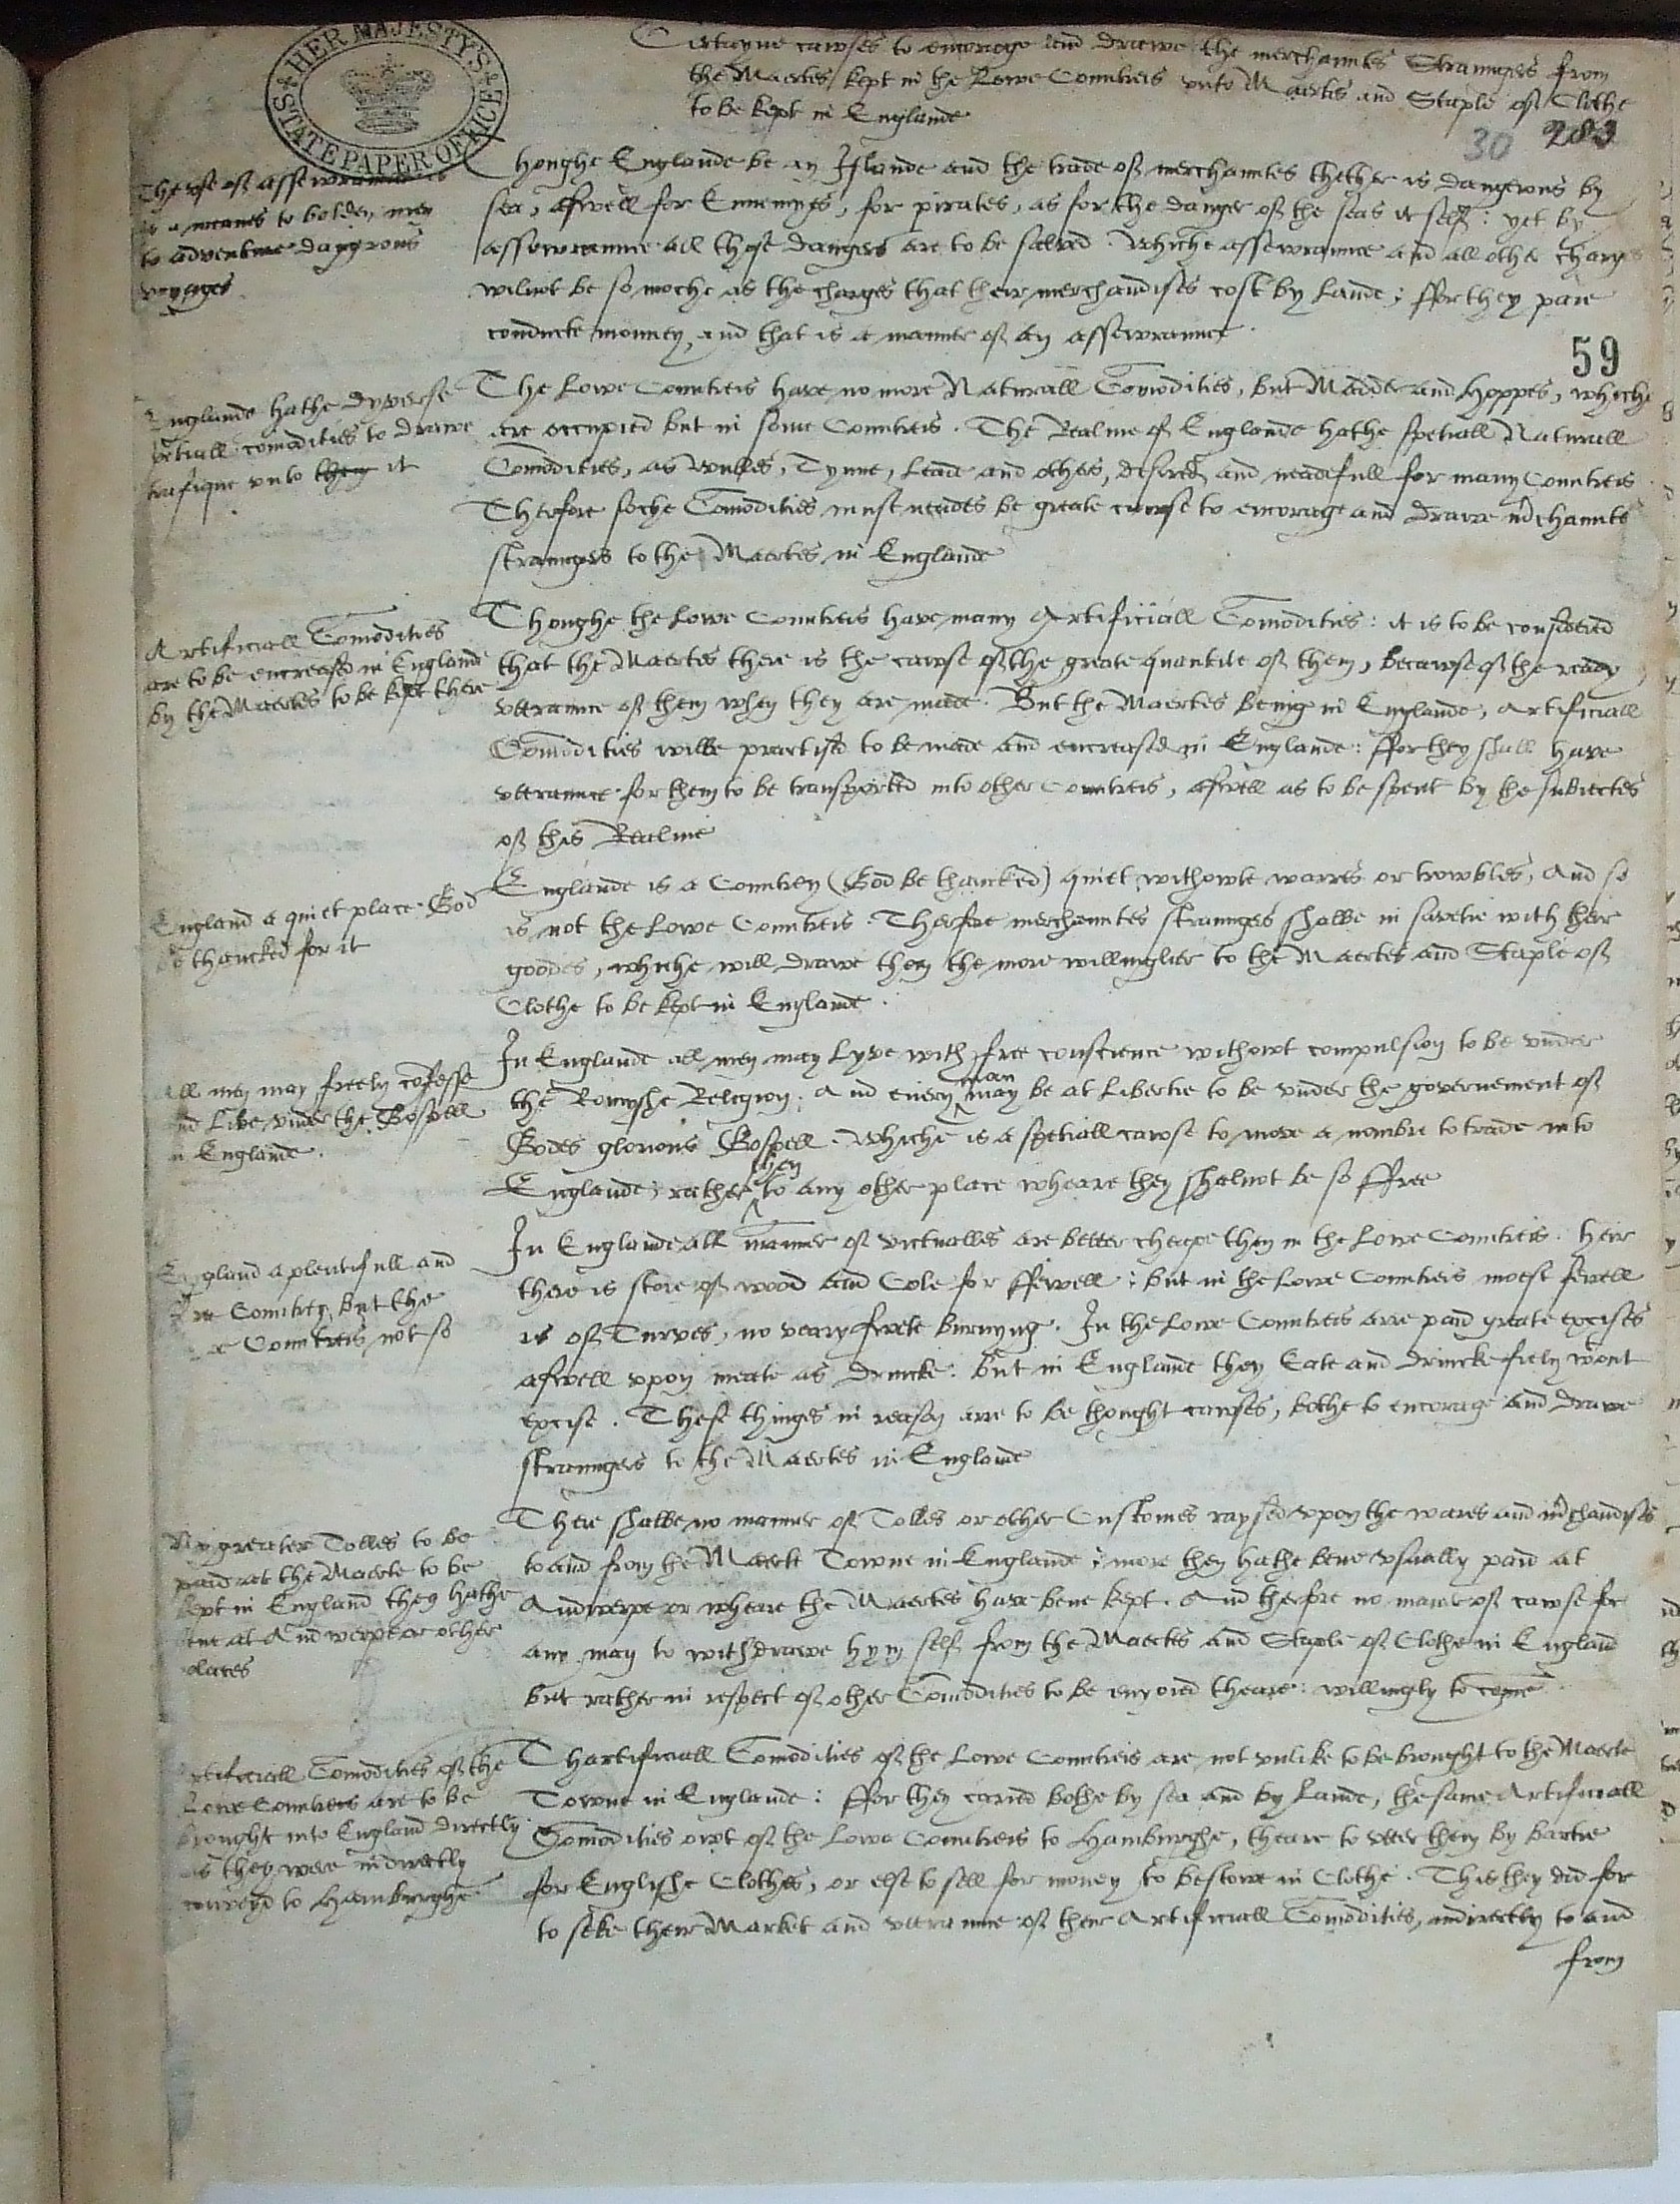 Certayne cawses to encorage and drawe the merchauntes Straungers from
the Maertes kept in the Lowe Countreis vnto Maertes and Staple of Clothe
to be kept in Englande
HER MAJESTY'S
STATE PAPER OFFICE
30 283
59
The vse of assewraunce is
a meanes to bolden men
to adventure dangerous
voyages
Thoughe Englande be an Islande and the trade of merchauntes thether is dangerous by
sea, aswell for Ennemyes, for pirates, as for the danger of the seas it self: yet by
assewraunce all those dangers are to be salved. Whiche assewraunce and all other charges
wilnot be so moche as the charges that their merchandises cost by Lande; ffor they paie
conducte monney, and that is a manner of an assewraunce.
Englande hathe dyverse
spetiall comodities to drawe
trafique vnto them it
The Lowe Countreis have no more Naturall Comodities, but Madder and Hoppes, whiche
are occupied but in some Countreis. The Realme of Englande hathe spetiall Naturall
Comodities, as Wulles, Tynne, Leade and others, desired and neadefull for many Countreis
Therfore soche Comodities must neades be greate cawse to encorage and drawe mrchaunts
straungers to the Maertes in Englande
Artificiall Comodities
are to be encreased in Englande
by the Maertes to be kept there
Thoughe the Lowe Countreis have many Artificiall Comodities: it is to be considered
that the Maertes there is the cawse of the greate quantite of them, becawse of the ready
vttraunce of them when they are made. But the Maertes being in Englande, Artificiall
Comodities wilbe practised to be made and encreased in Englande: ffor they shall have
vttraunce for them to be transported into other Countreis, aswell as to be spent by the subiectes
of this Realme
England a quiet place God
be thancked for it
Englande is a Countrey (God be thancked) quiet, withowte warres or trowbles, And so
is not the Lowe Countreis. Therfore merchauntes straungers shalbe in savetie with their
goodes, whiche will drawe them the more willinglier to the Maertes and Staple of
Clothe to be kept in Englande.
All men may freely cofesse
and Live vnder the Gospell
in Englande.
In Englande all men may Lyve with free conscience withowt compulsion to be vnder
the Romyshe Religion. And every man may be at Libertie to be vnder the governement of
Godes glorious Gospell. Whiche is a spetiall cawse to move a nombre to trade into
Englande, rather then to any other place wheare they shalnot be so ffree
England a plentifull and
free Countrey, but the
Countreis not so
In Englande all manner of victualles are better cheape then in the Lowe Countreis. Heir
there is store of wood and Cole for ffewell; but in the Lowe Countreis moest fewell
is of Turves, no veary swete burnyng. In the Lowe Countreis arre paid greate excises
aswell vpon meate as drincke. But in Englande they Eate and drincke frely wout
excise. These thinges in reason arre to be thought cawses, bothe to encorage and drawe
straungers to the Maertes in Englande
No greater Tolles to be
paid at the Maerte to be
kept in England then hathe
bene at Andwerpe or other
places
There shalbe no manner of Tolles or other Customes raysed vpon the wares and mrchandises
to and from the Maerte Towne in Englande; more then hathe bene vsually paid at
Andwerpe or wheare the Maertes have bene kept. And therfore no maner of cawse for
any man to withdrawe hym self from the Maertes and Staple of Clothe in England
but rather in respect of other Comodities to be enyoied theare: willingly to come.
Artificiall Comodities of the
Lowe Countreis are to be
brought into England directly
as they were indirectly
conveyd to Hamburghe
Thartificiall Comodities of the Lowe Countreis are not vnlike to be brought to the Maerte
Towne in Englande: ffor they caried bothe by sea and by Lande, the same Artificiall
Comodities owt of the Lowe Countreis to Hamburghe, theare to vtter them by bartre
for Englishe Clothes, or else to sell for money to bestowe in Clothe. This they did for
to seke their Market and vttraunce of their Artificiall Comodities, indirectly to and
from